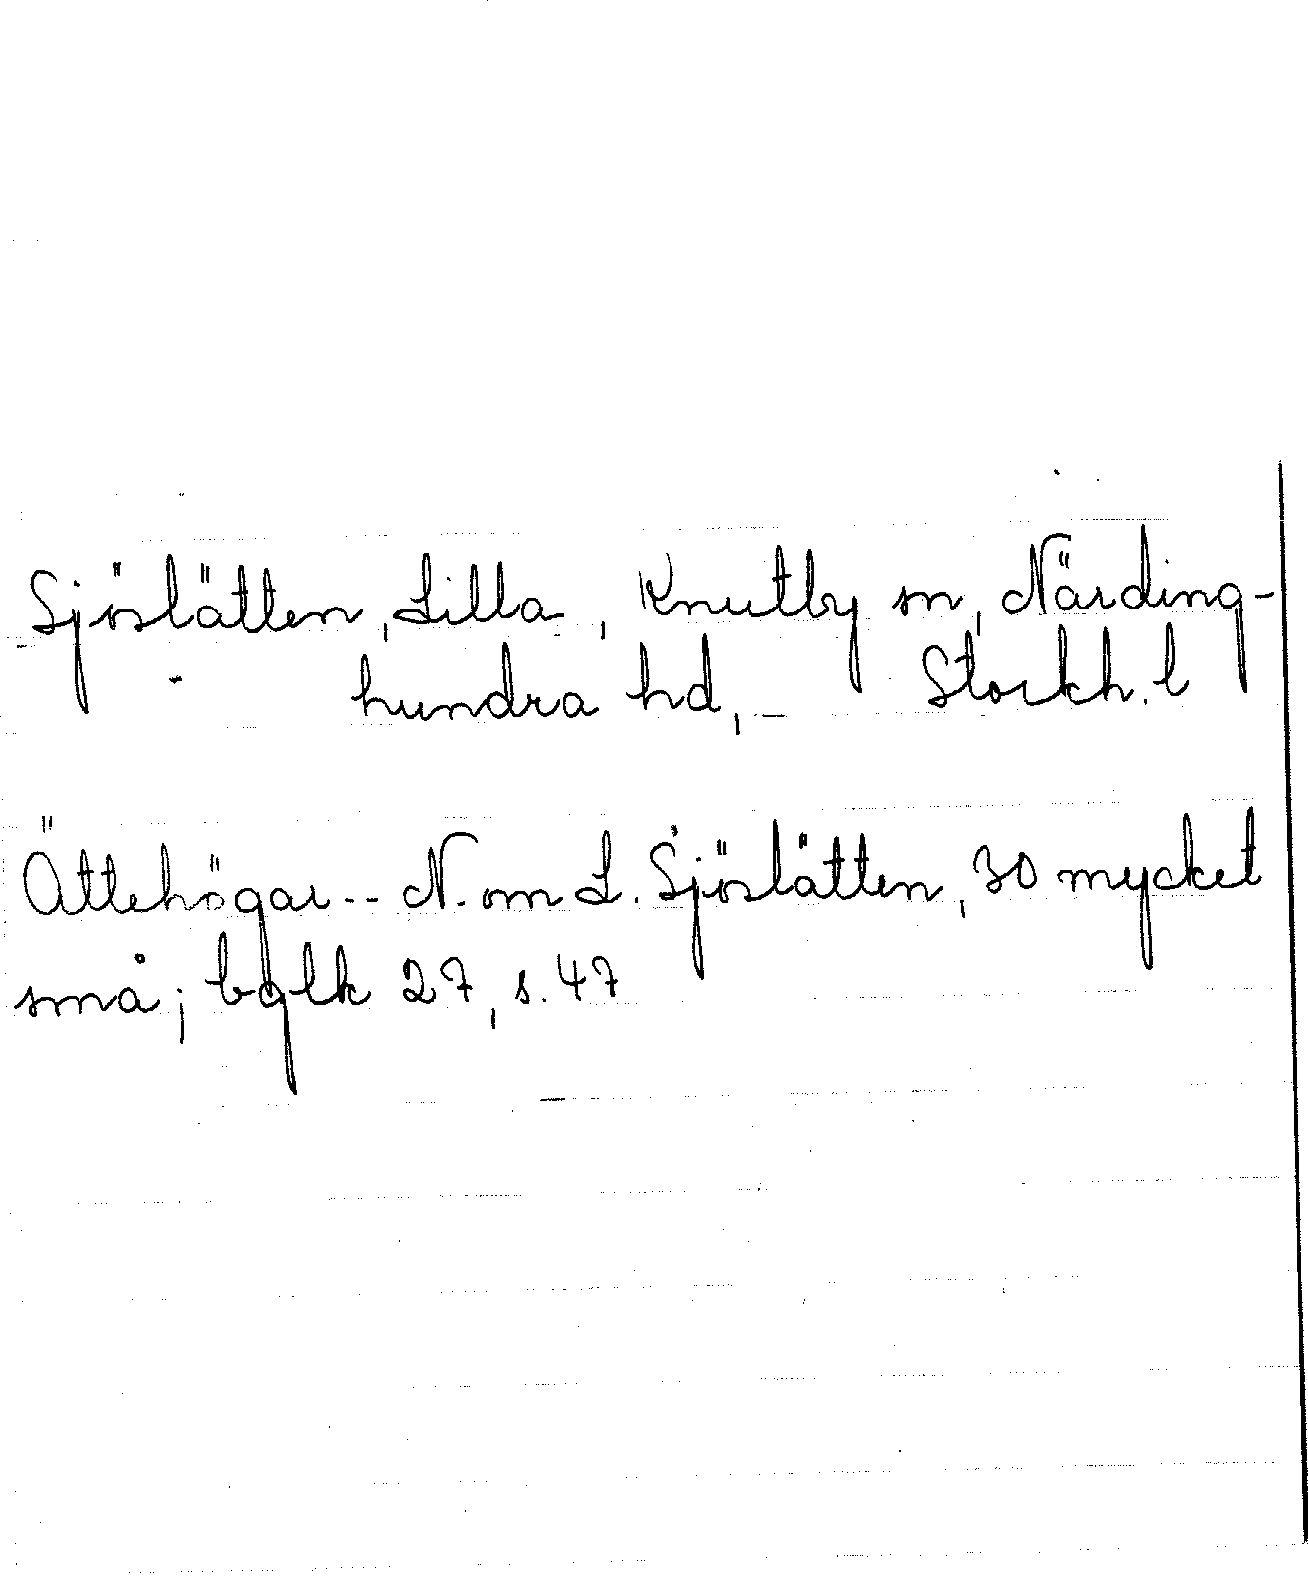 Sjöslätten, Lilla, Knutby sn, Närding-
hundra hd, Stockh. l
Ättehögar -- N. om L. Sjöslätten, 30 mycket
små; bglk 27, s. 47